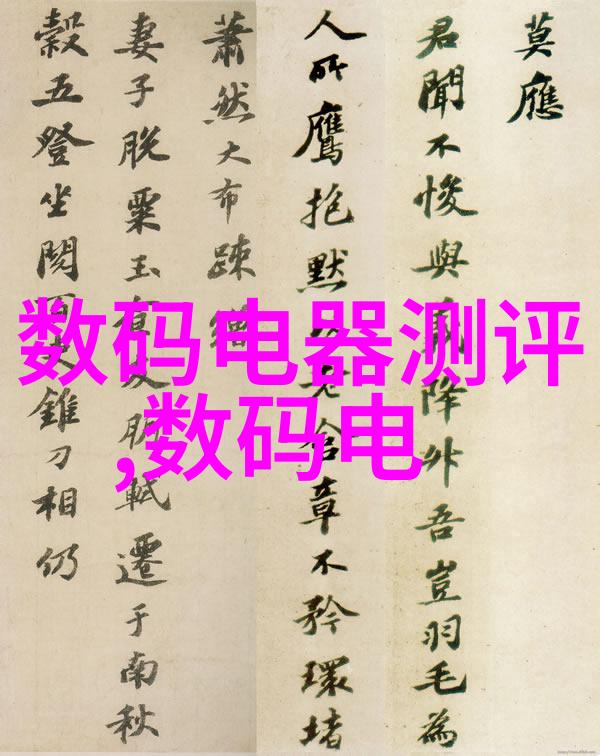 莫應
君聞不悛與義降外吾豈羽毛為
人所鷹抱默老含章不矜環堵
蕭然大布疎繒
妻子脫粟玉食朋軾遷于南秋
穀五登坐閱錐刀相仍
数码电器测评
,数码电